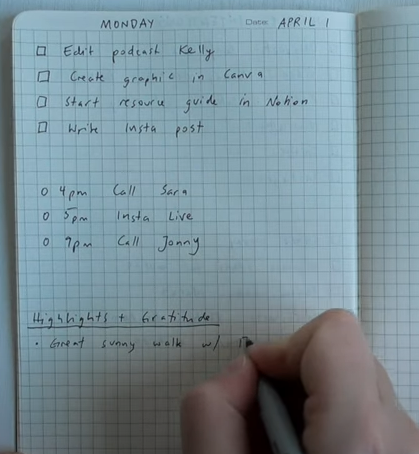 MONDAY Date: APRIL 1
Edit podcast Kelly
Create graphic in Canva
Start resource guide in Notion
Write Insta post
4pm Call Sara
5pm Insta Live
7pm Call Jonny
Highlights + Gratitude
• Great sunny walk w/